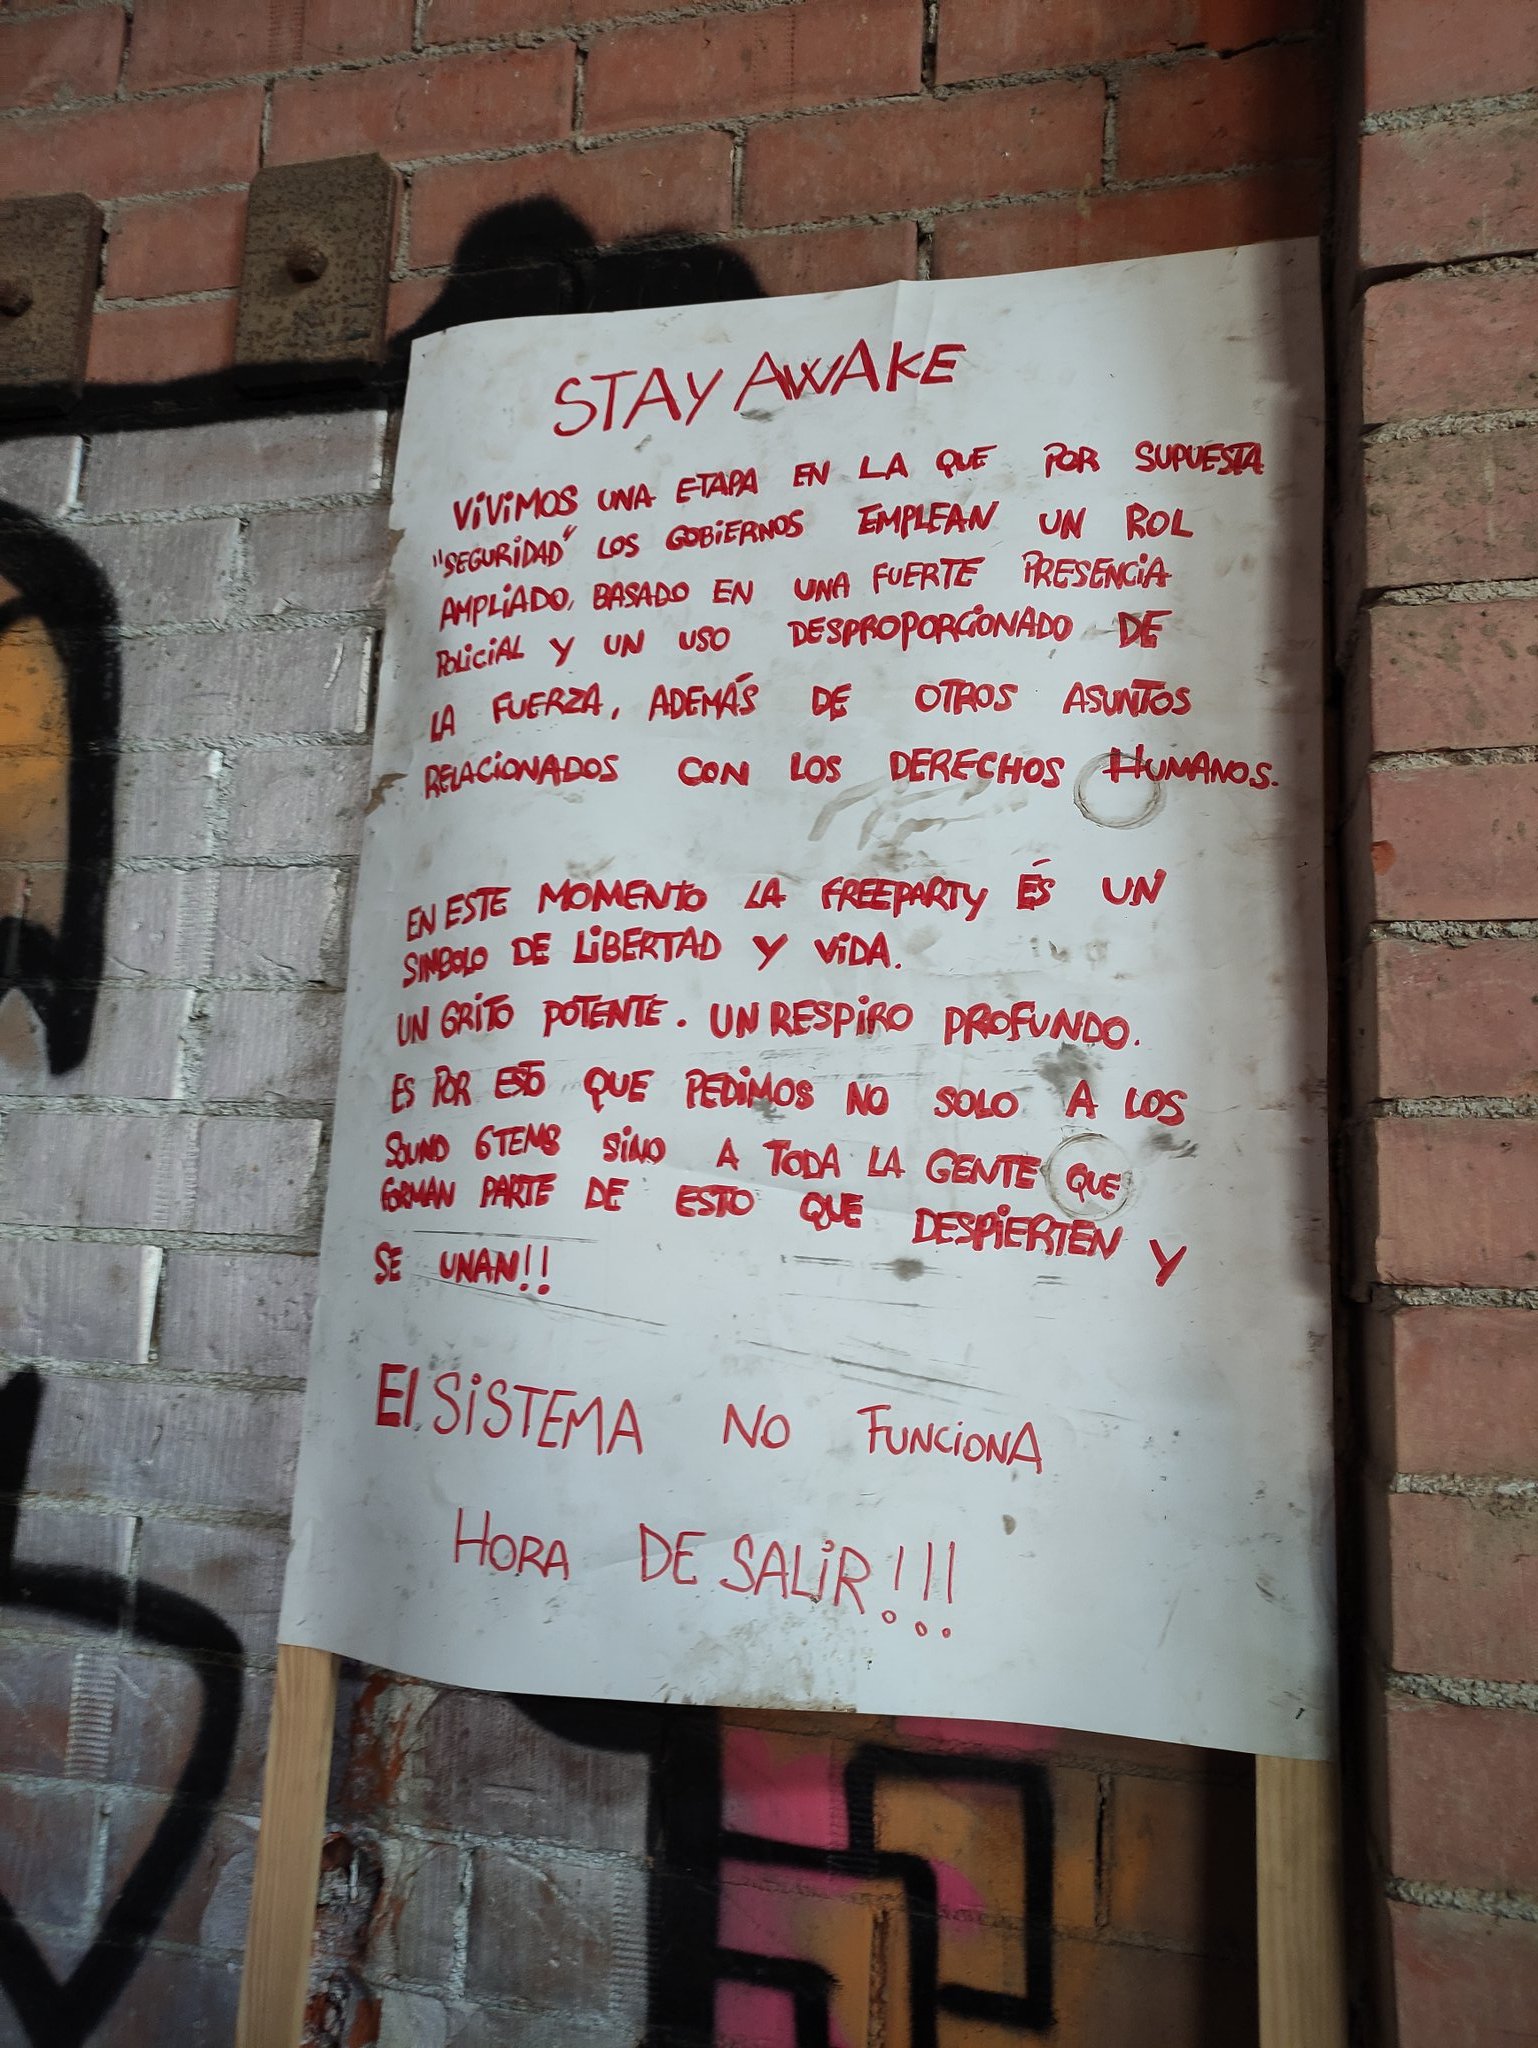 STAY AWAKE
ViViMOS UNA ETAPA EN LA QUE POR SUPUESTA
"SEGURiDAD" LOS GOBiERNOS EMPLEAN UN ROL
AMPLiADO, BASADO EN UNA FUERTE PRESENCiA
POLiCiAL Y UN USO DESPROPORCiONADO DE
LA FUERZA, ADEMÁS DE OTROS ASUNTOS
RELACIONADOS CON LOS DERECHOS HUMANOS.
EN ESTE MOMENTO LA FREEPARTY ÉS UN
SIMBOLO DE LiBERTAD Y ViDA.
UN GRiTO POTENTE. UN RESPiRO PROFUNDO.
ES POR ESTO QUE PEDiMOS NO SOLO A LOS
SOUND 6TEMS SiNO A TODA LA GENTE QUE
FORMAN PARTE DE ESTO QUE DESPiERTEN Y
SE UNAN!!
El SiSTEMA NO FUNCiONA
HORA DE SALiR!!!